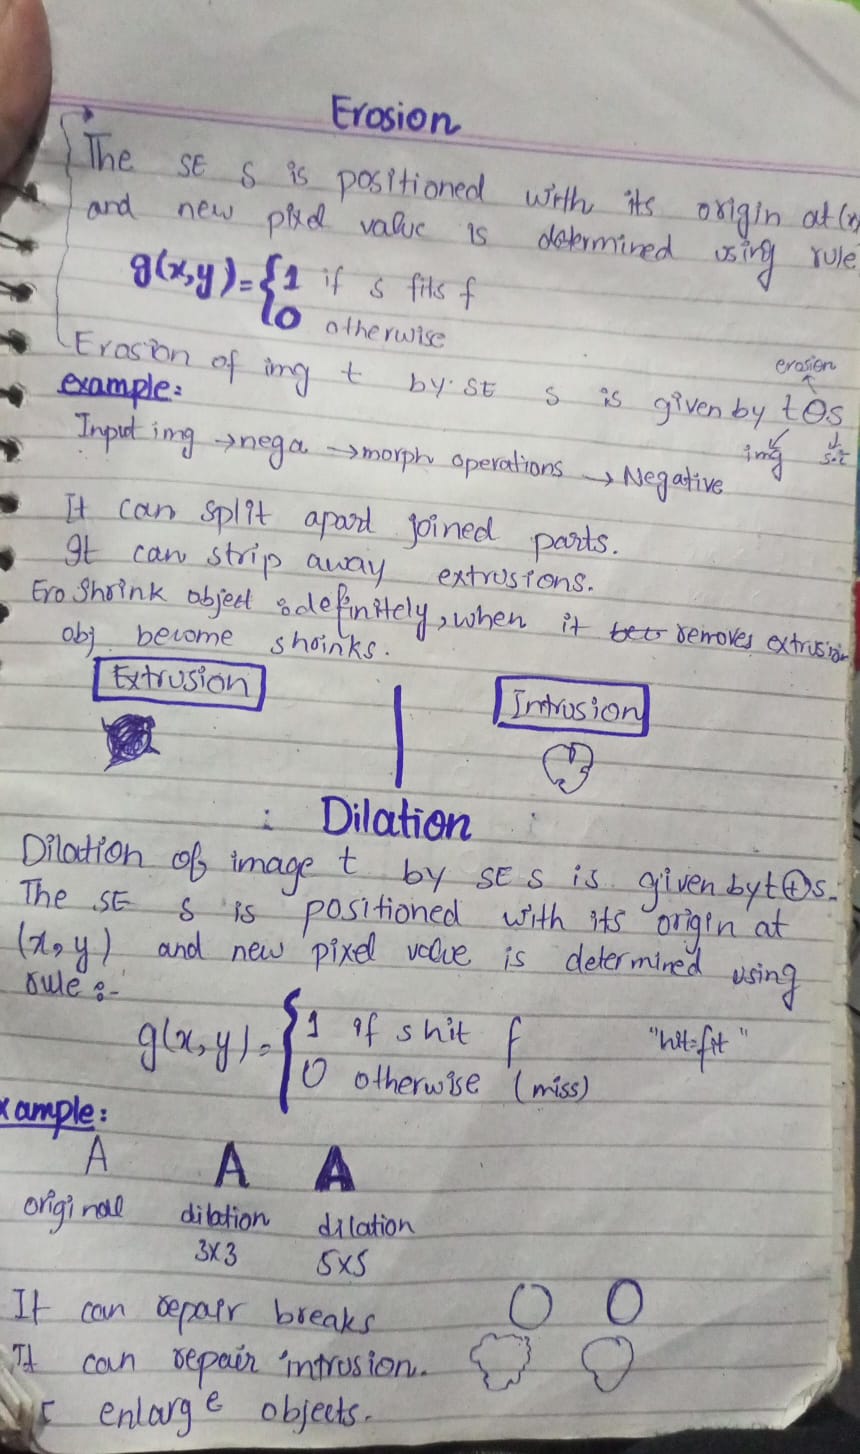 Erosion
The SE s is positioned with its origin at (x,
and new pixel value is determined using rule
g(x,y)={1 if s fits f
0 otherwise
Erosion of img t by SE s is given by t⊖s
erosion
img s.e
example:
Input img →nega →morph operations → Negative
It can split apart joined parts.
It can strip away extrusions.
Ero Shrink object :definitely, when it removes extrusion
obj become shrinks.
Extrusion
Intrusion
: Dilation :
Dilation of image t by SE s is given by t⊕s.
The SE s is positioned with its origin at
(x,y) and new pixel value is determined using
rule :-
g(x,y)={1 if s hit f "hit=fit"
0 otherwise (miss)
xample:
A A A
original dilation dilation
3x3 5x5
It can repair breaks
It can repair intrusion.
enlarge objects.